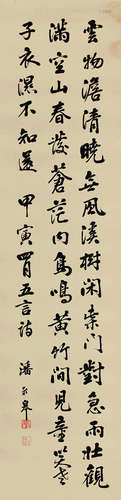 雲物澹清曉無風溪樹閑柴門對急雨壯觀
滿空山春發蒼茫內鳥鳴黃竹間兒童笑老
子衣濕不知還 甲寅四月五言詩 潘